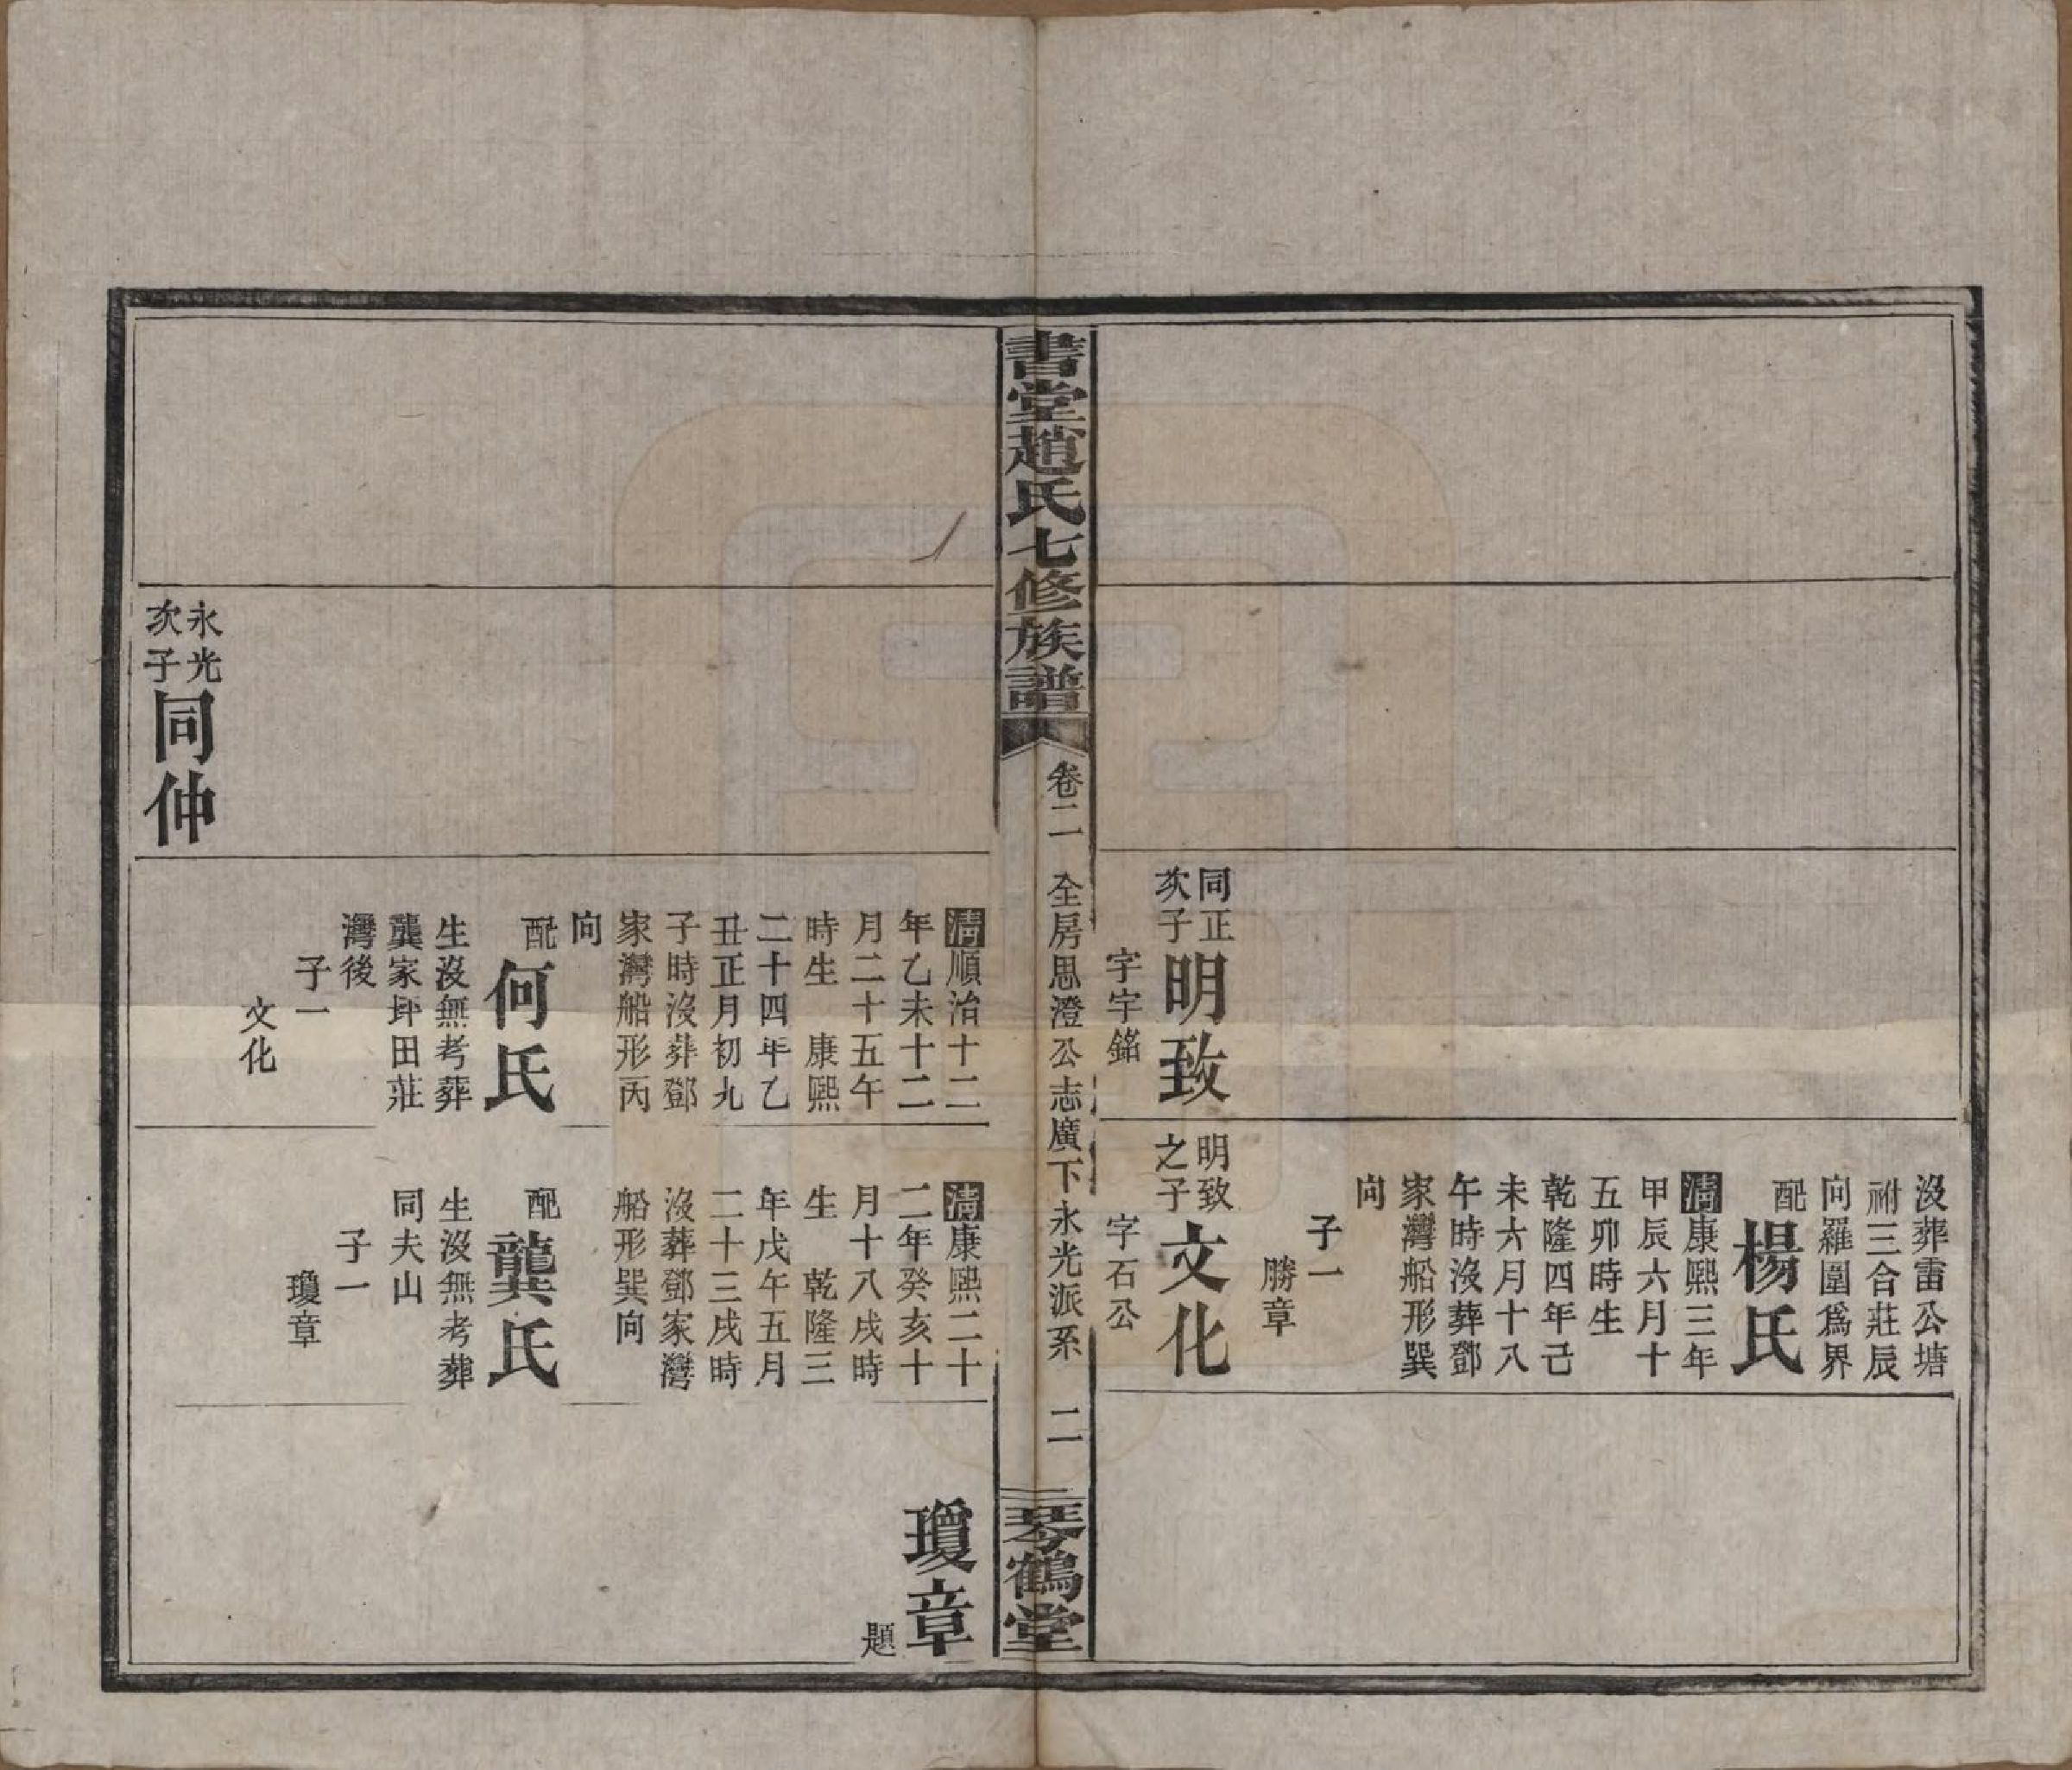 沒葬雷公塘
祔三合莊辰
向羅圍爲界
配楊氏
清康熙三年
甲辰六月十
五卯時生
乾隆四年己
未六月十八
午時沒葬鄧
家灣船形巽
向
子一
勝章
同正
次子
明致
字宇銘
明致
之子
文化
字石公
書堂趙氏七修族譜
卷二
全房思澄公志廣下永光派系
二
琴鶴堂
清順治十二
年乙未十二
月二十五午
時生　康熙
二十四年乙
丑正月初九
子時沒葬鄧
家灣船形丙
向
配何氏
生沒無考葬
龔家坪田莊
灣後
子一
文化
清康熙二十
二年癸亥十
月十八戌時
生　乾隆三
年戊午五月
二十三戌時
沒葬鄧家灣
船形巽向
配龔氏
生沒無考葬
同夫山
子一
瓊章
瓊章
題
永光
次子
同仲